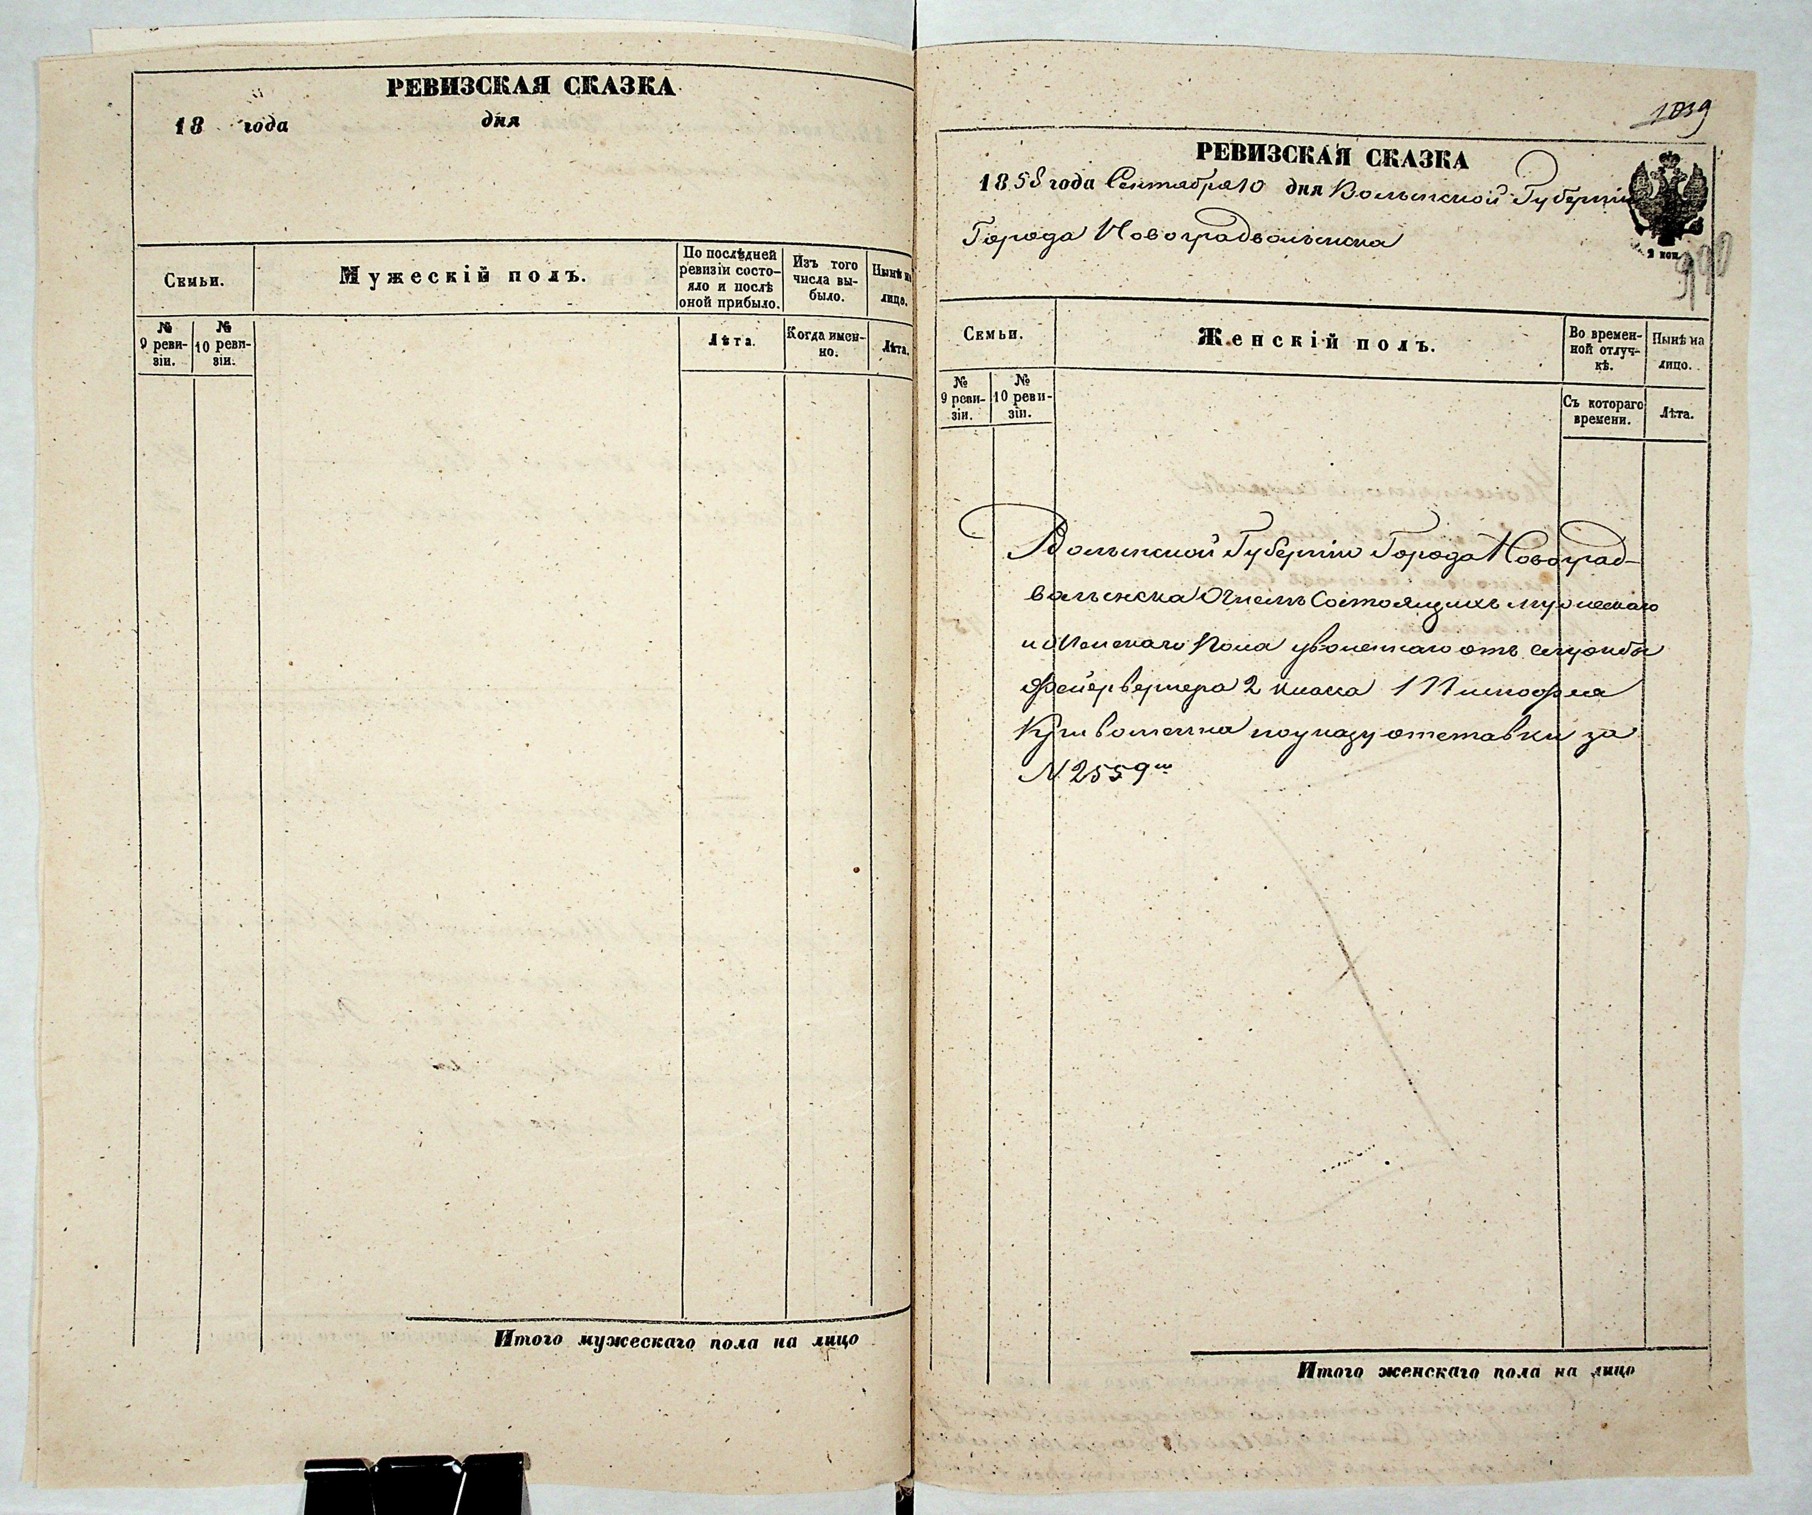 РЕВИЗСКАЯ СКАЗКА
18 года дня
Семьи.
Мужескій полъ.
По послѣдней ревизіи состо-
яло и послѣ оной прибыло.
Изъ того числа вы-
было.
Нынѣ на лицо.
№ 9 реви-
зіи.
№ 10 реви-
зіи.
Лѣта.
Когда имен-
но.
Лѣта.
Итого мужескаго пола на лицо
1039
РЕВИЗСКАЯ СКАЗКА
1858 года Сентября 10 дня Волынской Губерніи
Города Новоградволынска
2 коп.
Семьи.
Женскій полъ.
Во времен-
ной отлуч-
кѣ.
Нынѣ на лицо.
№ 9 реви-
зіи.
№ 10 реви-
зіи.
Съ котораго времени.
Лѣта.
Волынской Губерніи Города Новоград-
волынска О Состоящихъ мужескаго
и Женскаго Пола уволеннаго отъ службы
Фейерверкера 2 класа
по указу отставки за
N 2559
Итого женскаго пола на лицо